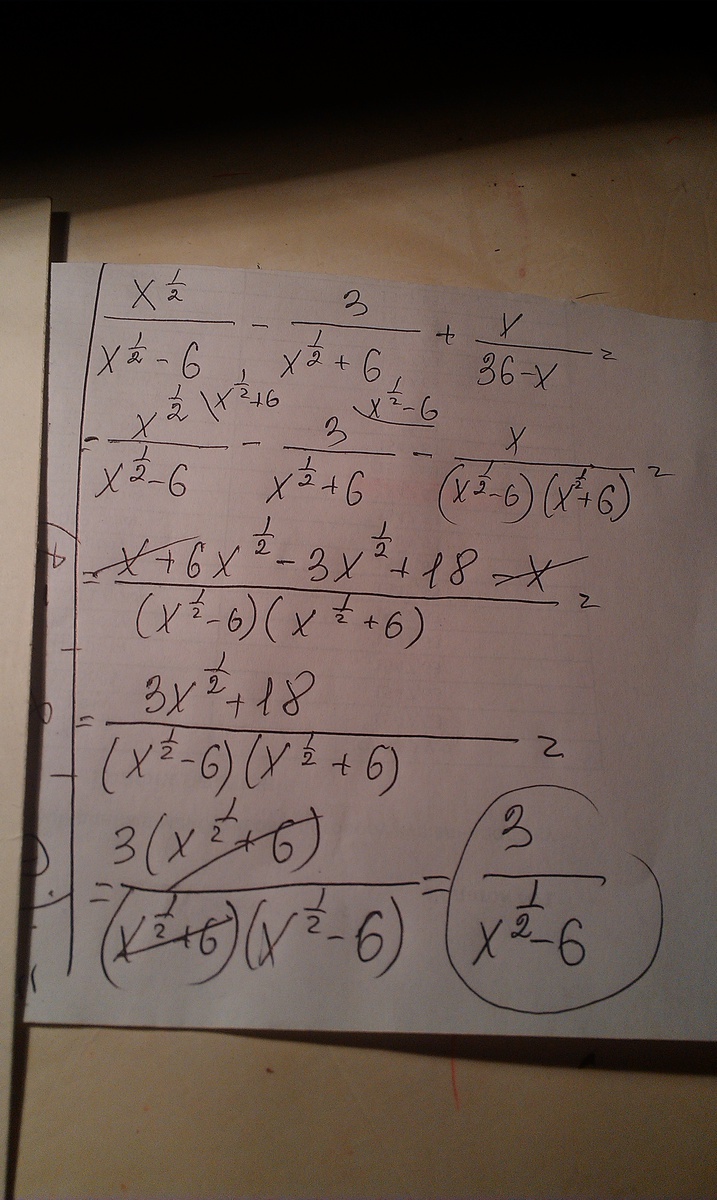 x^(1/2) / (x^(1/2) - 6) - 3 / (x^(1/2) + 6) + x / (36 - x) =
= x^(1/2) \x^(1/2)+6 / (x^(1/2) - 6) - 3 \x^(1/2)-6 / (x^(1/2) + 6) - x / ((x^(1/2) - 6)(x^(1/2) + 6)) =
= (x + 6x^(1/2) - 3x^(1/2) + 18 - x) / ((x^(1/2) - 6)(x^(1/2) + 6)) =
= (3x^(1/2) + 18) / ((x^(1/2) - 6)(x^(1/2) + 6)) =
= 3(x^(1/2) + 6) / ((x^(1/2) + 6)(x^(1/2) - 6)) = 3 / (x^(1/2) - 6)